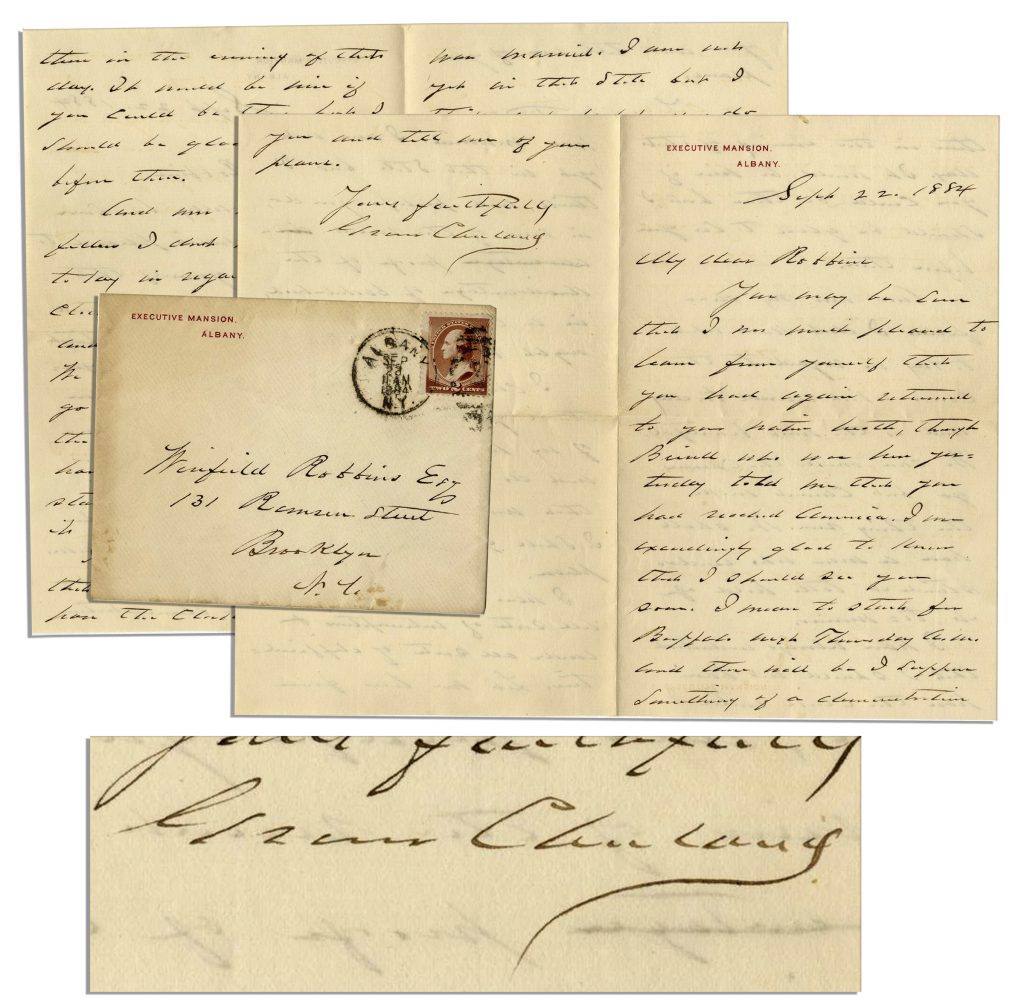 EXECUTIVE MANSION,
ALBANY.
Sept 22. 1884
My dear Robbins
You may be sure
that I was much pleased to
learn from yourself that
you had again returned
to your native heath, though
Bissell who was here yes-
terday told me that you
had reached America. I am
exceedingly glad to know
that I should see you
soon. I mean to start for
Buffalo next Thursday
and there will be I suppose
something of a demonstration
there in the evening of that
day. It would be nice if
you could be there but I
should be
before then.
And
fellers I don't
to day in
and
We
go
the
it
pon the
was married. I am not
yet in that State but I
do
you and tell me of your
plans.
Yours faithfully
Grover Cleveland
EXECUTIVE MANSION,
ALBANY.
ALBANY
SEP
11 AM
1884
N.Y.
TWO CENTS
Winfield Robbins Esq
131 Remsen Street
Brooklyn
N.Y.
Yours faithfully
Grover Cleveland